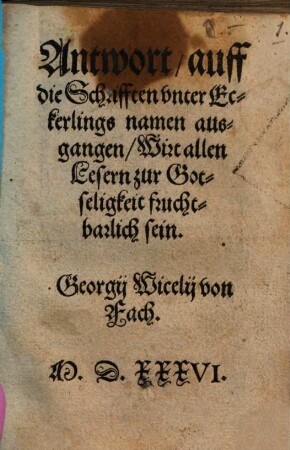 1.
Antwort/ auff
die Schrifften vnter Ec-
kerlings namen aus-
gangen/ Wirt allen
Lesern zur Got-
seligkeit frucht-
barlich sein.
Georgij Wicelij von
Fach.
M. D. XXXVI.